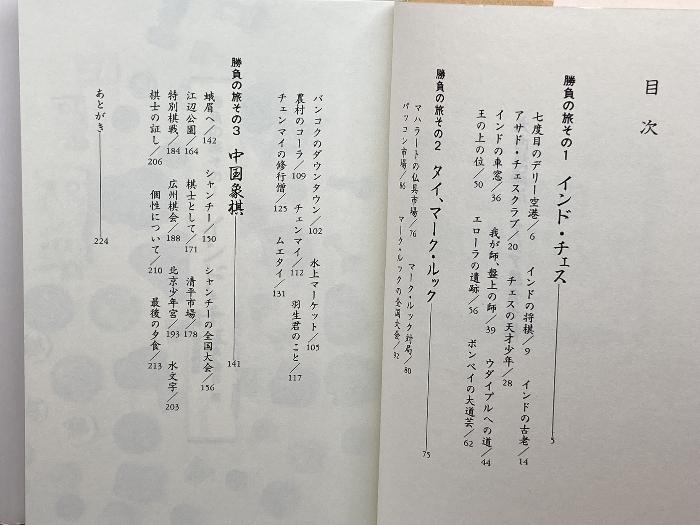 目次
勝負の旅その1 インド・チェス 5
七度目のデリー空港/6 インドの将棋/9 インドの古老/14
アサド・チェスクラブ/20 チェスの天才少年/28
インドの車窓/36 我が師、盤上の師/39 ウダイプルへの道/44
王の上の位/50 エローラの遺跡/56 ボンベイの大道芸/62
勝負の旅その2 タイ、マーク・ルック 75
マハラートの仏具市場/76 マーク・ルック対局/80
パッコン市場/86 マーク・ルックの全国大会/92
バンコクのダウンタウン/102 水上マーケット/105
農村のコーラ/109 チェンマイ/112 羽生君のこと/117
チェンマイの修行僧/125 ムエタイ/131
勝負の旅その3 中国象棋 141
蛾眉へ/142 シャンチー/150 シャンチーの全国大会/156
江辺公園/164 棋士として/171 清平市場/178
特別棋戦/184 広州棋会/188 北京少年宮/193 水文字/203
棋士の証し/206 個性について/210 最後の夕食/213
あとがき 224